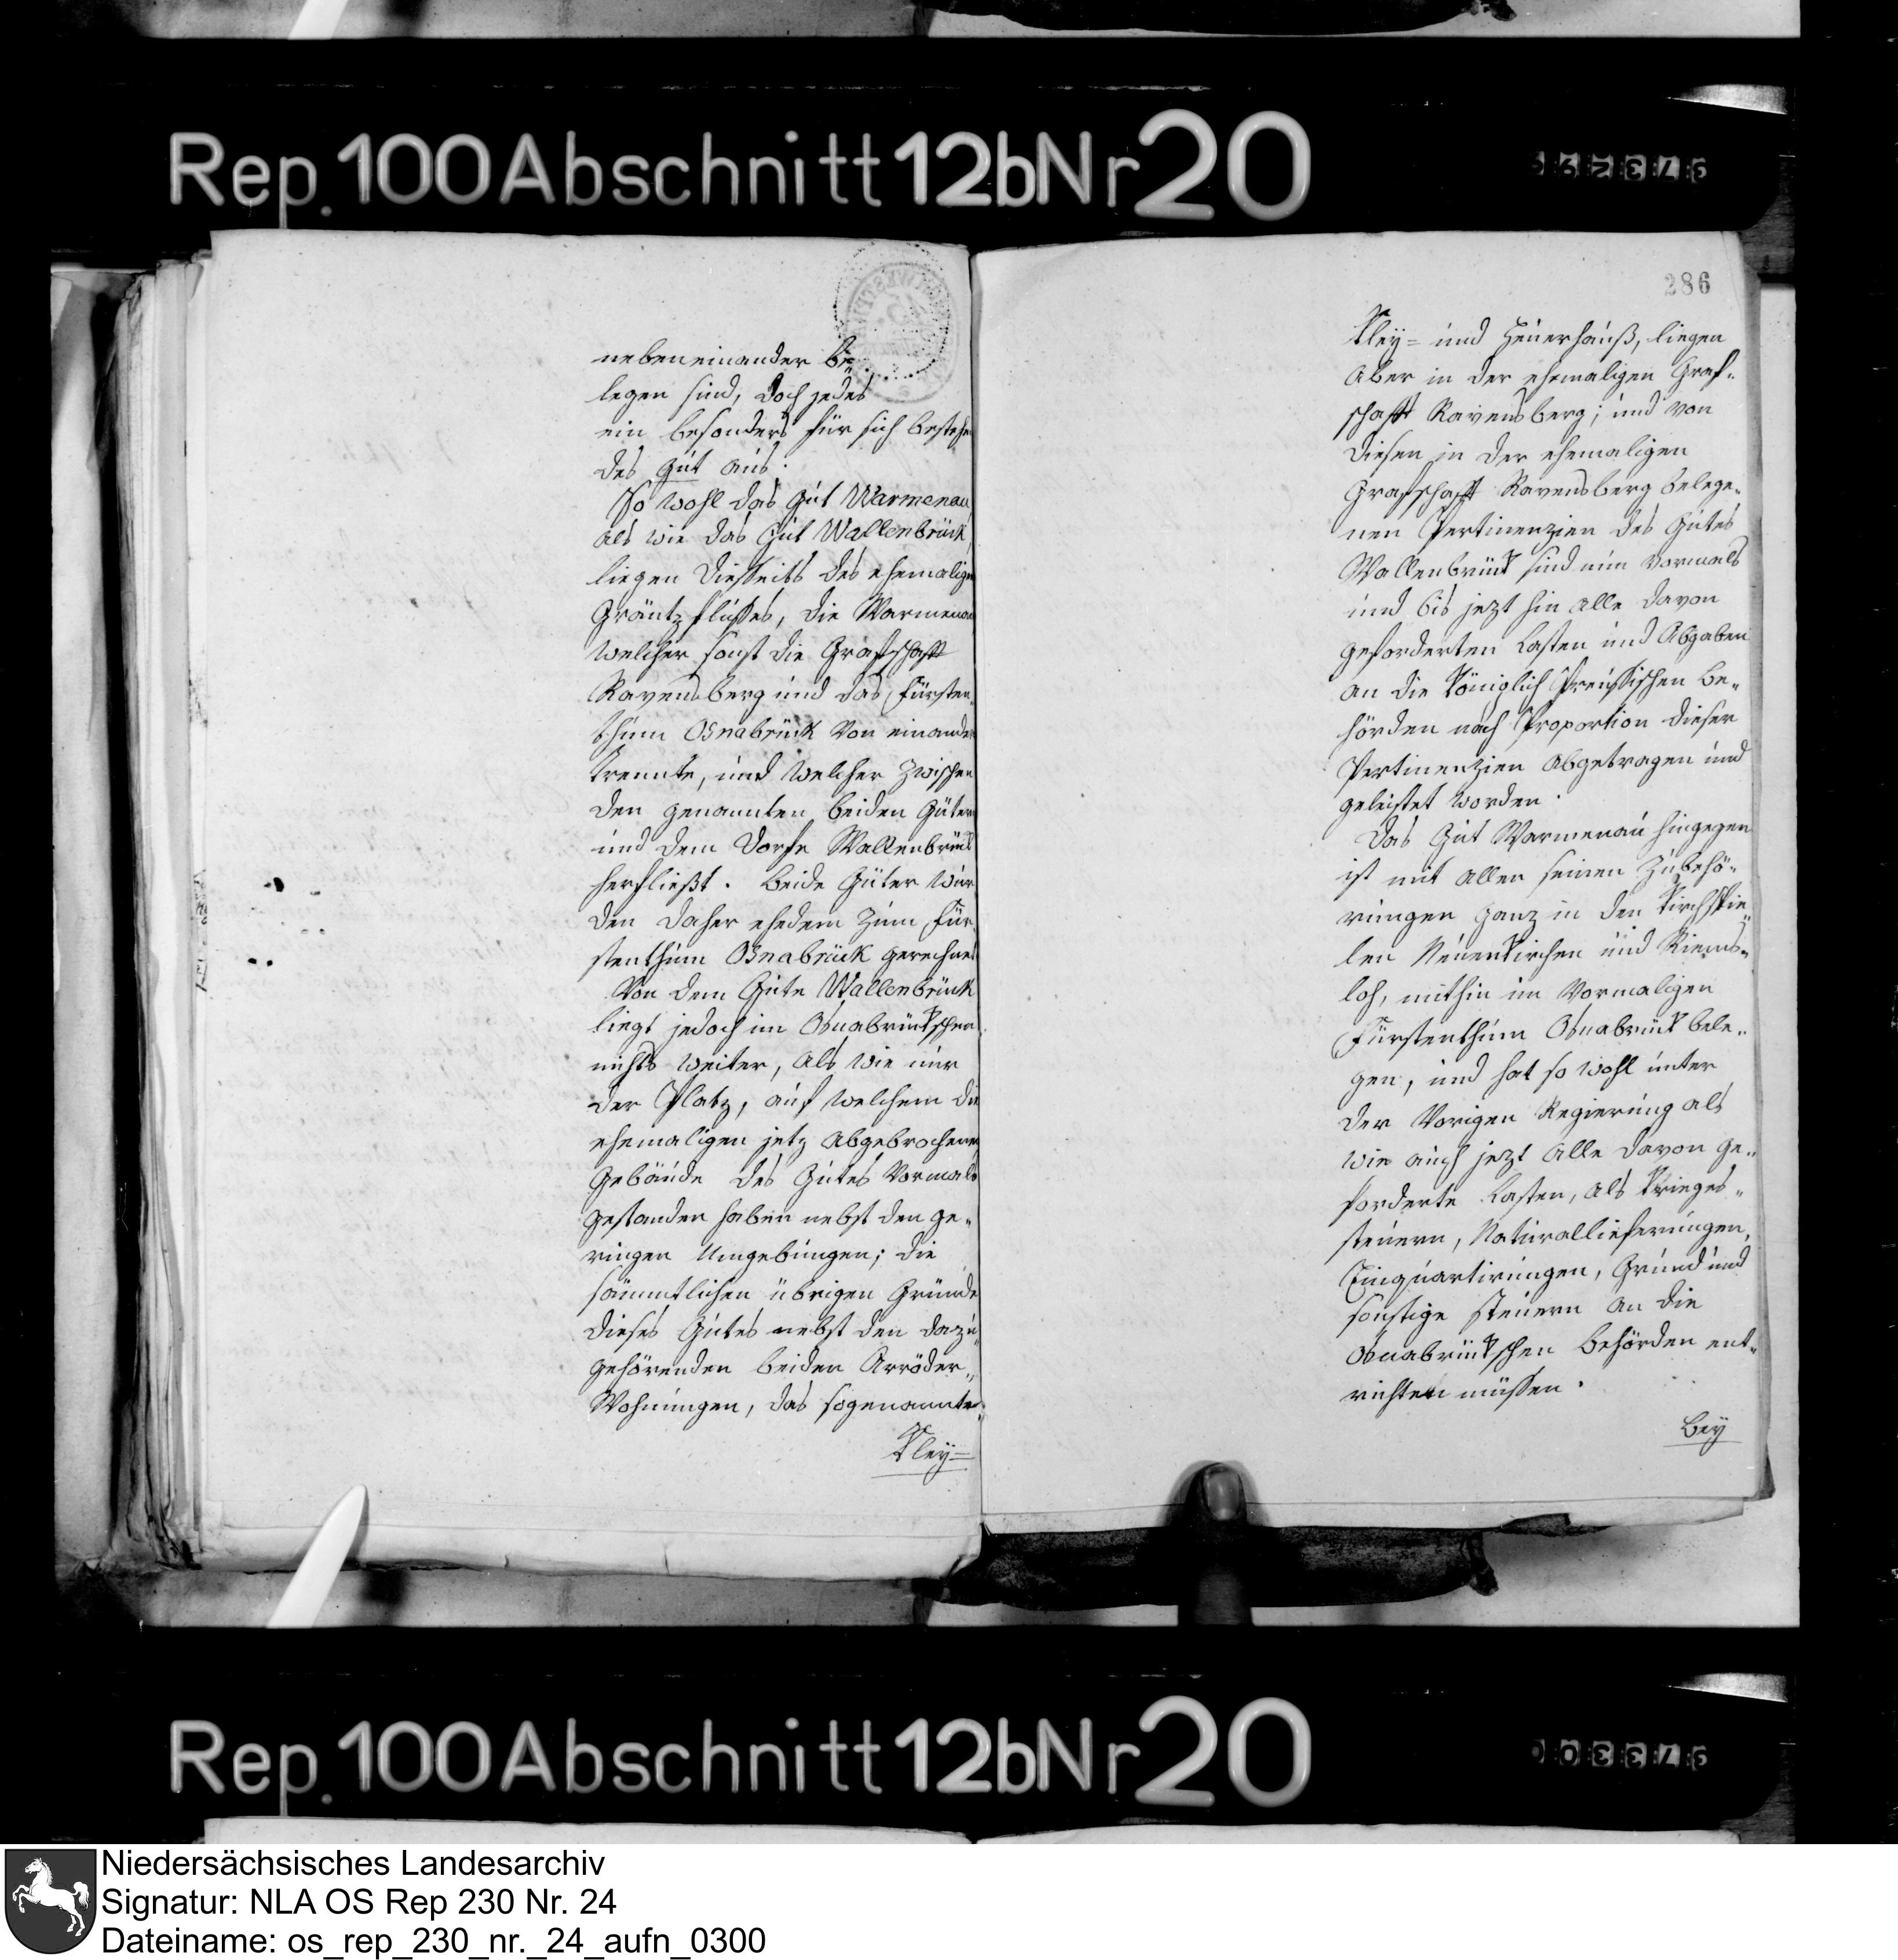 Rep. 100 Abschnitt 12b Nr 20
nebeneinander be-
legen sind, doch jedes
ein besonders für sich bestehen
des Gut aus.
So wohl das Gut Warmenau,
als wie das Gut Wallenbrück,
liegen diesseits des ehemaligen
Gräntzflusses, die Warmenau
welcher sonst die Grafschaft
Ravensberg und das Fürsten-
thum Osnabrück von einander
trennte, und welcher zwischen
den genannten beiden Gütern
und dem Dorfe Wallenbrück
herfließt. Beide Güter wur
den daher ehedem zum Für
stenthum Osnabrück gerechnet
Von dem Gute Wallenbrück
liegt jedoch im Osnabrückschen
nichts weiter, als wie nur
der Platz, auf welchem die
ehemaligen jetz abgebrochenen
Gebäude des Gutes vormals
gestanden haben nebst den ge-
ringen Umgebungen; die
sämmtlichen übrigen Gründe
dieses Gutes nebst den dazu
gehörenden beiden Arröder-
Wohnungen, das sogenannte
Kley=
286
Kley= und Heuerhauß, liegen
aber in der ehemaligen Graf-
schaft Ravensberg; und von
diesen in der ehemaligen
Grafschaft Ravensberg belege-
nen Pertinenzien des Gutes
Wallenbrück sind nun vormals
und bis jezt hin alle davon
geforderten Lasten und Abgaben
an die Königlich Preußischen Be-
hörden nach Proportion dieser
Pertinenzien abgetragen und
geleistet worden.
Das Gut Warmenau hingegen
ist mit allen seinen Zubehö-
rungen ganz in den Kirchspie
len Neuenkirchen und Riems-
loh, mithin im vormaligen
Fürstenthum Osnabrück bele-
gen, und hat so wohl unter
der vorigen Regierung als
wie auch jezt alle davon ge-
forderte Lasten, als Krieges-
steuern, Naturallieferungen,
Einquartirungen, Grund und
sonstige Steuern an die
Osnabrückschen Behörden ent-
richten müssen.
Bey
Rep. 100 Abschnitt 12b Nr 20
Niedersächsisches Landesarchiv
Signatur: NLA OS Rep 230 Nr. 24
Dateiname: os_rep_230_nr._24_aufn_0300